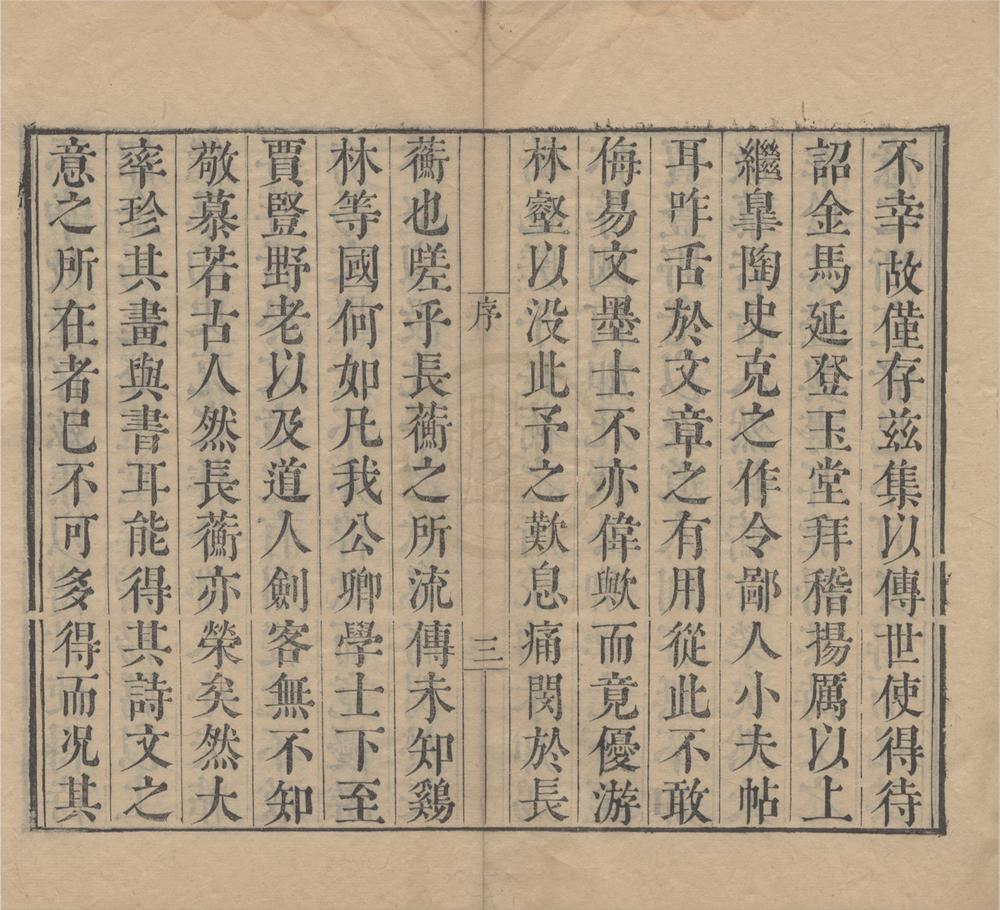 不幸故僅存兹集以傳世使得待
詔金馬延登玉堂拜稽揚厲以上
繼臯陶史克之作令鄙人小夫帖
耳咋舌於文章之有用從此不敢
侮易文墨士不亦偉歟而竟優游
林壑以没此予之歎息痛閔於長
序 三
蘅也嗟乎長蘅之所流傳未知鷄
林等國何如凡我公卿學士下至
賈豎野老以及道人劍客無不知
敬慕若古人然長蘅亦榮矣然大
率珍其畫與書耳能得其詩文之
意之所在者已不可多得而况其